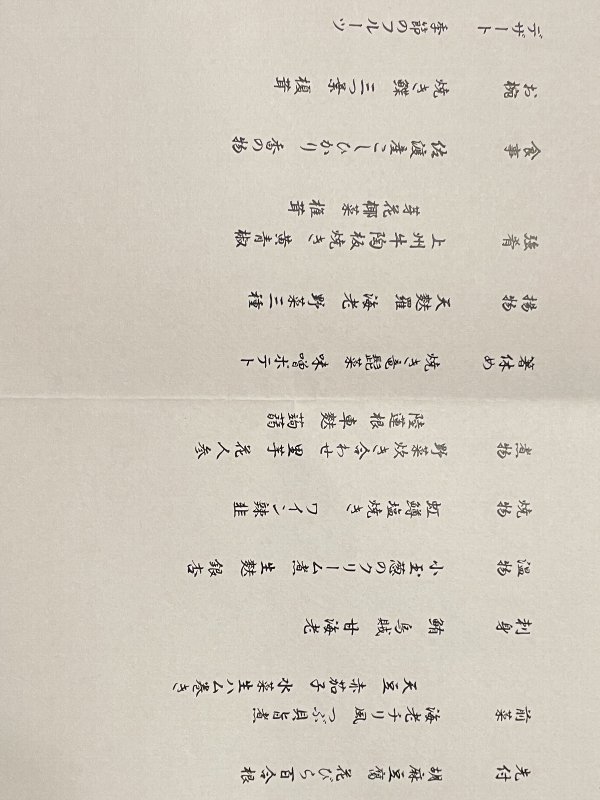 先付 胡麻豆腐 花びら百合根
前菜 海老チリ風 つぶ貝旨煮
天豆 赤茄子 水菜生ハム巻き
刺身 鮪 烏賊 甘海老
温物 小玉葱のクリーム煮 生麩 銀杏
焼物 虹鱒塩焼き ワイン辣韭
煮物 野菜炊き合わせ 里芋 花人参
陸蓮根 車麩 蒟蒻
箸休め 焼き竜髭菜 味噌ポテト
揚物 天麩羅 海老 野菜三種
強肴 上州牛陶板焼き 黄青椒
芽花椰菜 椎茸
食事 佐渡産こしひかり 香の物
お椀 焼き鰈 三つ葉 榎茸
デザート 季節のフルーツ